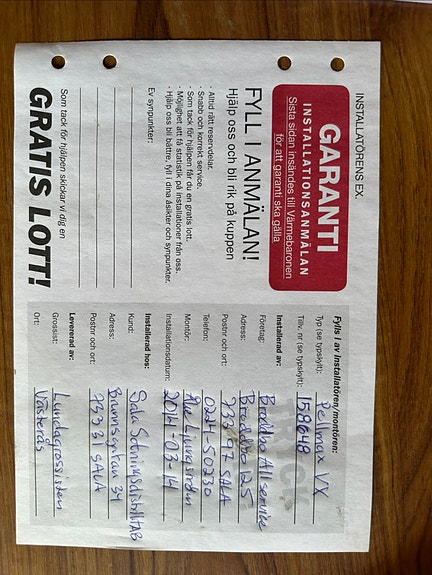 INSTALLATÖRENS EX.
GARANTI
INSTALLATIONSANMÄLAN
Sista sidan insändes till Värmebaronen
för att garanti ska gälla
FYLL I ANMÄLAN!
Hjälp oss och bli rik på kuppen
- Alltid rätt reservdelar.
- Snabb och korrekt service.
- Som tack för hjälpen får du en gratis lott.
- Möjlighet att få statistik på installationer från oss.
- Hjälp oss bli bättre, fyll i dina åsikter och synpunkter.
Ev synpunkter:
Som tack för hjälpen skickar vi dig en
GRATIS LOTT!
Fylls i av Installatören/montören:
Typ (se typskylt): Pellmax VX
Tillv. nr (se typskylt): 158648
Installerad av:
Företag: Broddbo Allservice
Adress: Broddbo 25
Postnr och ort: 733 97 SALA
Telefon: 0224-50230
Montör: Åke Ljungström
Installationsdatum: 2014-03-14
Installerad hos:
Kund: Sala
Adress: 34
Postnr och ort: 733 31 SALA
Levererad av:
Grossist: Lundagrossisten
Ort: Västerås